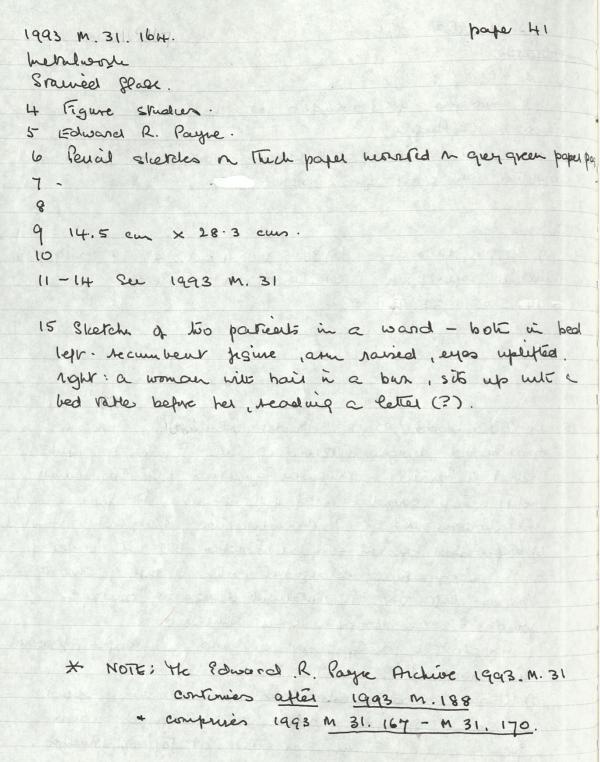 1993 M.31.164. page 41
Metalwork
Stained Glass.
4 Figure studies.
5 Edward R. Payne.
6 Pencil sketches on thick paper mounted on grey green paper
7 -
8
9 14.5 cm x 28.3 cms.
10
11-14 See 1993 M.31
15 Sketch of two patients in a ward – both in bed
left. recumbent figure, arm raised, eyes uplifted.
right: a woman with hair in a bun, sits up with a
bed table before her, reading a letter (?).
* NOTE: The Edward .R. Payne Archive 1993.M.31
continues after 1993 M.188
+ comprises 1993 M 31.167 – M 31.170.